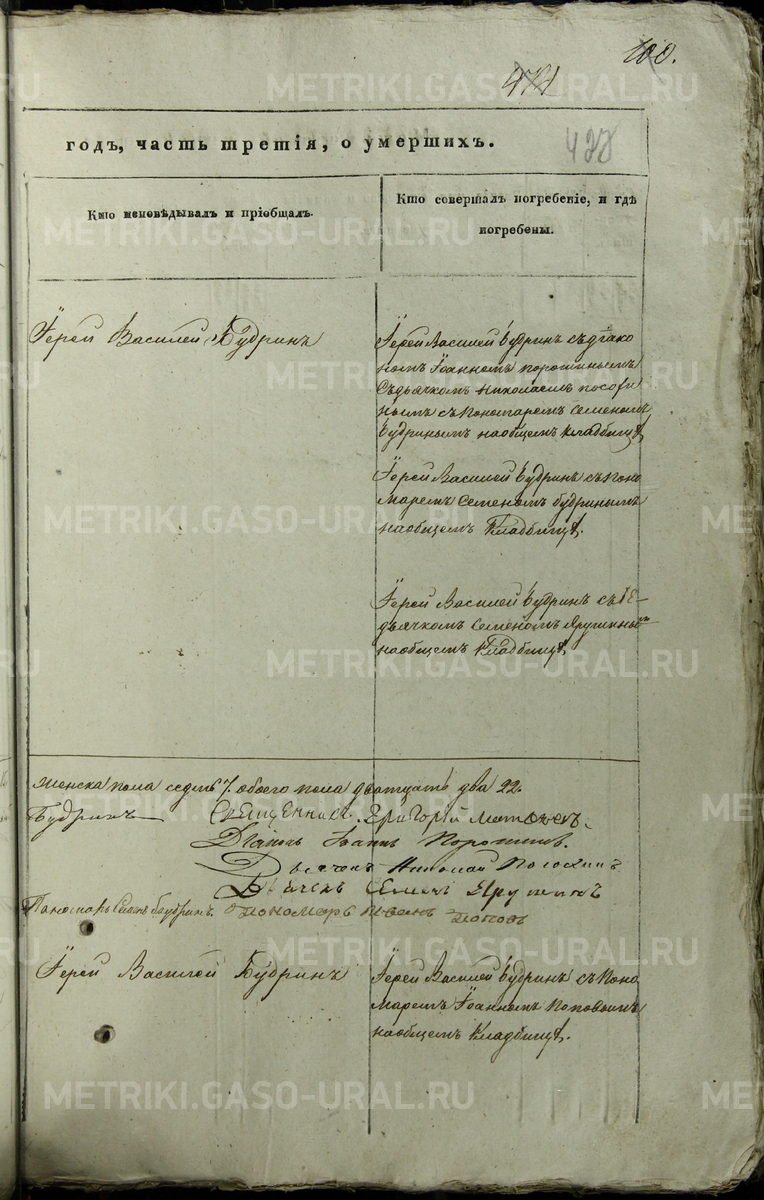 100.
474
годъ, часть третія, о умершихъ.
428
Кто исповѣдывалъ и пріобщалъ.
Кто совершалъ погребеніе, и гдѣ
погребены.
Іерей Василей Будринъ
Іерей Василей Будринъ съ діако
номъ Іоанномъ порошинымъ
Съдьячкомъ Николаемъ посохи
нымъ съ Пономаремъ Семеномъ
Будринымъ наобщемъ Кладбищѣ
Іерей Василей Будринъ съ Поно
маремъ Семеномъ Будринымъ
наобщемъ Кладбищѣ.
Іерей Василей Будринъ съ
дьячкомъ Семеномъ Ярушины
наобщемъ Кладбищѣ
женска пола седмь 7. обоего пола дватцать два 22.
Будринъ
Священникъ Григорій
Діаконъ Іоаннъ Порошинъ.
Дьячокъ Николай Посохинъ
Дьячекъ Семенъ Ярушинъ
Пономарь Семенъ Будринъ
пономарь Иванъ Поповъ
Іерей Василей Будринъ
Іерей Василей Будринъ съ Поно
маремъ Іоанномъ Поповымъ
наобщемъ Кладбищѣ.
METRIKI.GASO-URAL.RU